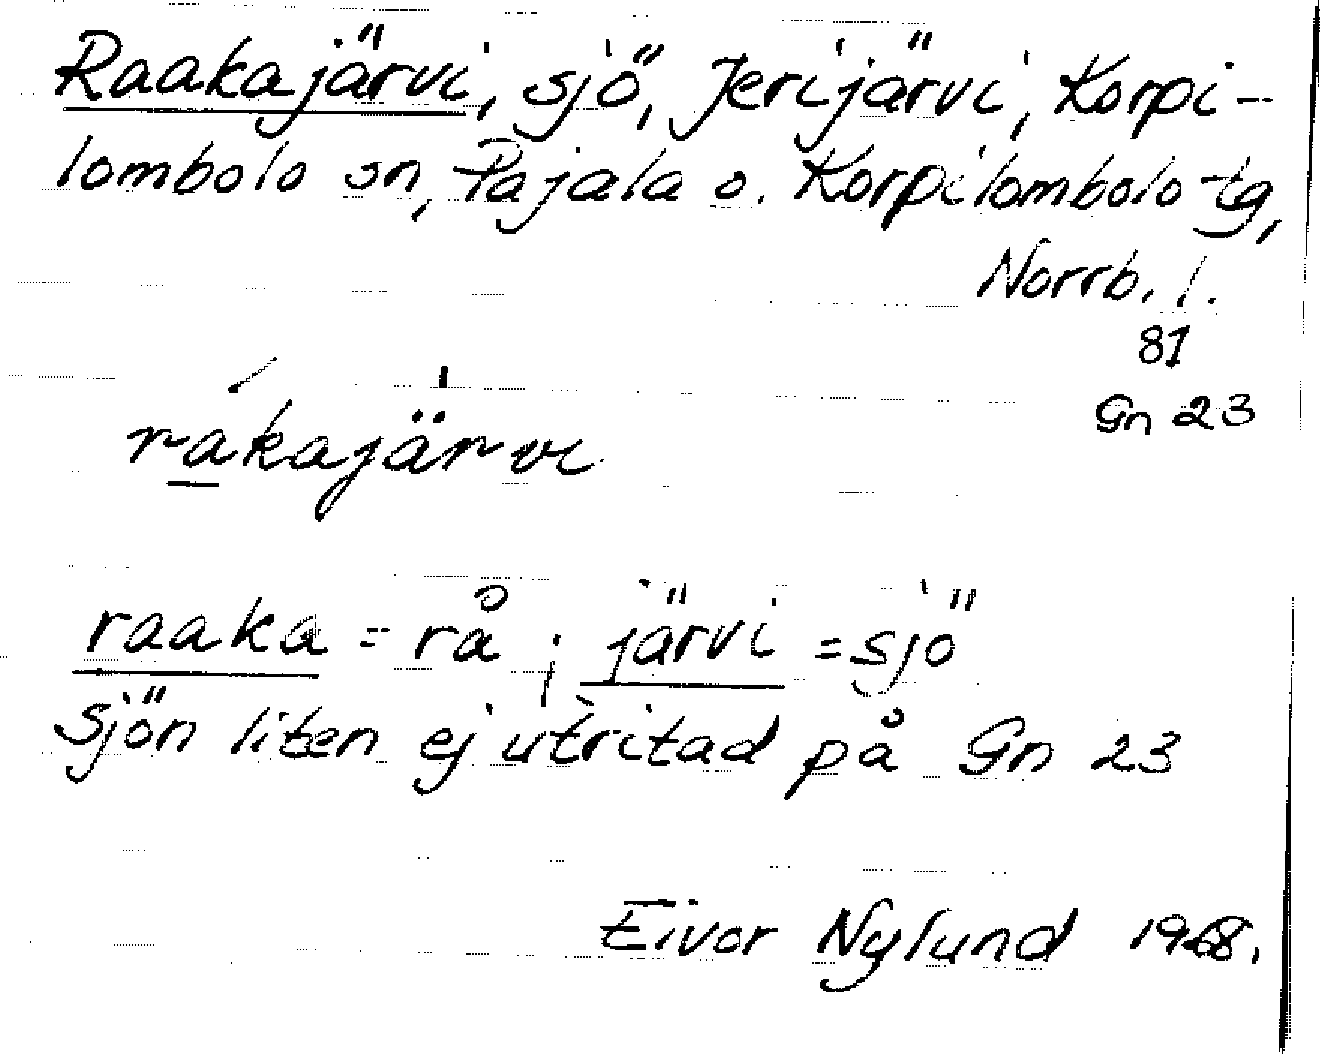 Raakajärvi, sjö, Jerijärvi, Korpi-
lombolo sn, Pajala o. Korpilombolo tg,
Norrb. l.
81
Gn 23
rakajärvi
raaka = rå ; järvi = sjö
Sjön liten ej utritad på Gn 23
Eivor Nylund 1968.